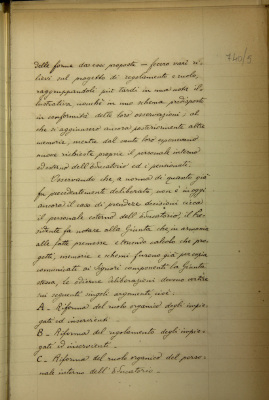 740/5
delle forma da essi proposta — fecero vari ri-
lievi sul progetto di regolamento e ruolo,
raggruppandoli più tardi in una nota il-
lustrativa nonché in uno schema predisposto
in conformità delle loro osservazioni, al
che si aggiunsero ancora posteriormente altre
memorie, mentre dal canto loro esponevano
nuove richieste proprie il personale interno
ed esterno dell'Educatorio ed i pensionati.
Osservando che, a norma di quanto già
fu precedentemente deliberato, non è in oggi
ancora il caso di prendere decisioni circa
il personale esterno dell'Educatorio, il Pre-
sidente fa notare alla Giunta che in armonia
alle fatte promesse e tenuto calcolo che pro-
getti, memorie e schemi furono già per copia
comunicati ai Signori componenti la Giunta
stessa, le odierne deliberazioni devono vertere
sui seguenti singoli argomenti cioè:
A — Riforma del ruolo organico degli impie-
gati ed inservienti —
B — Riforma del regolamento degli impie-
gati ed inservienti —
C — Riforma del ruolo organico del perso-
nale interno dell'Educatorio —